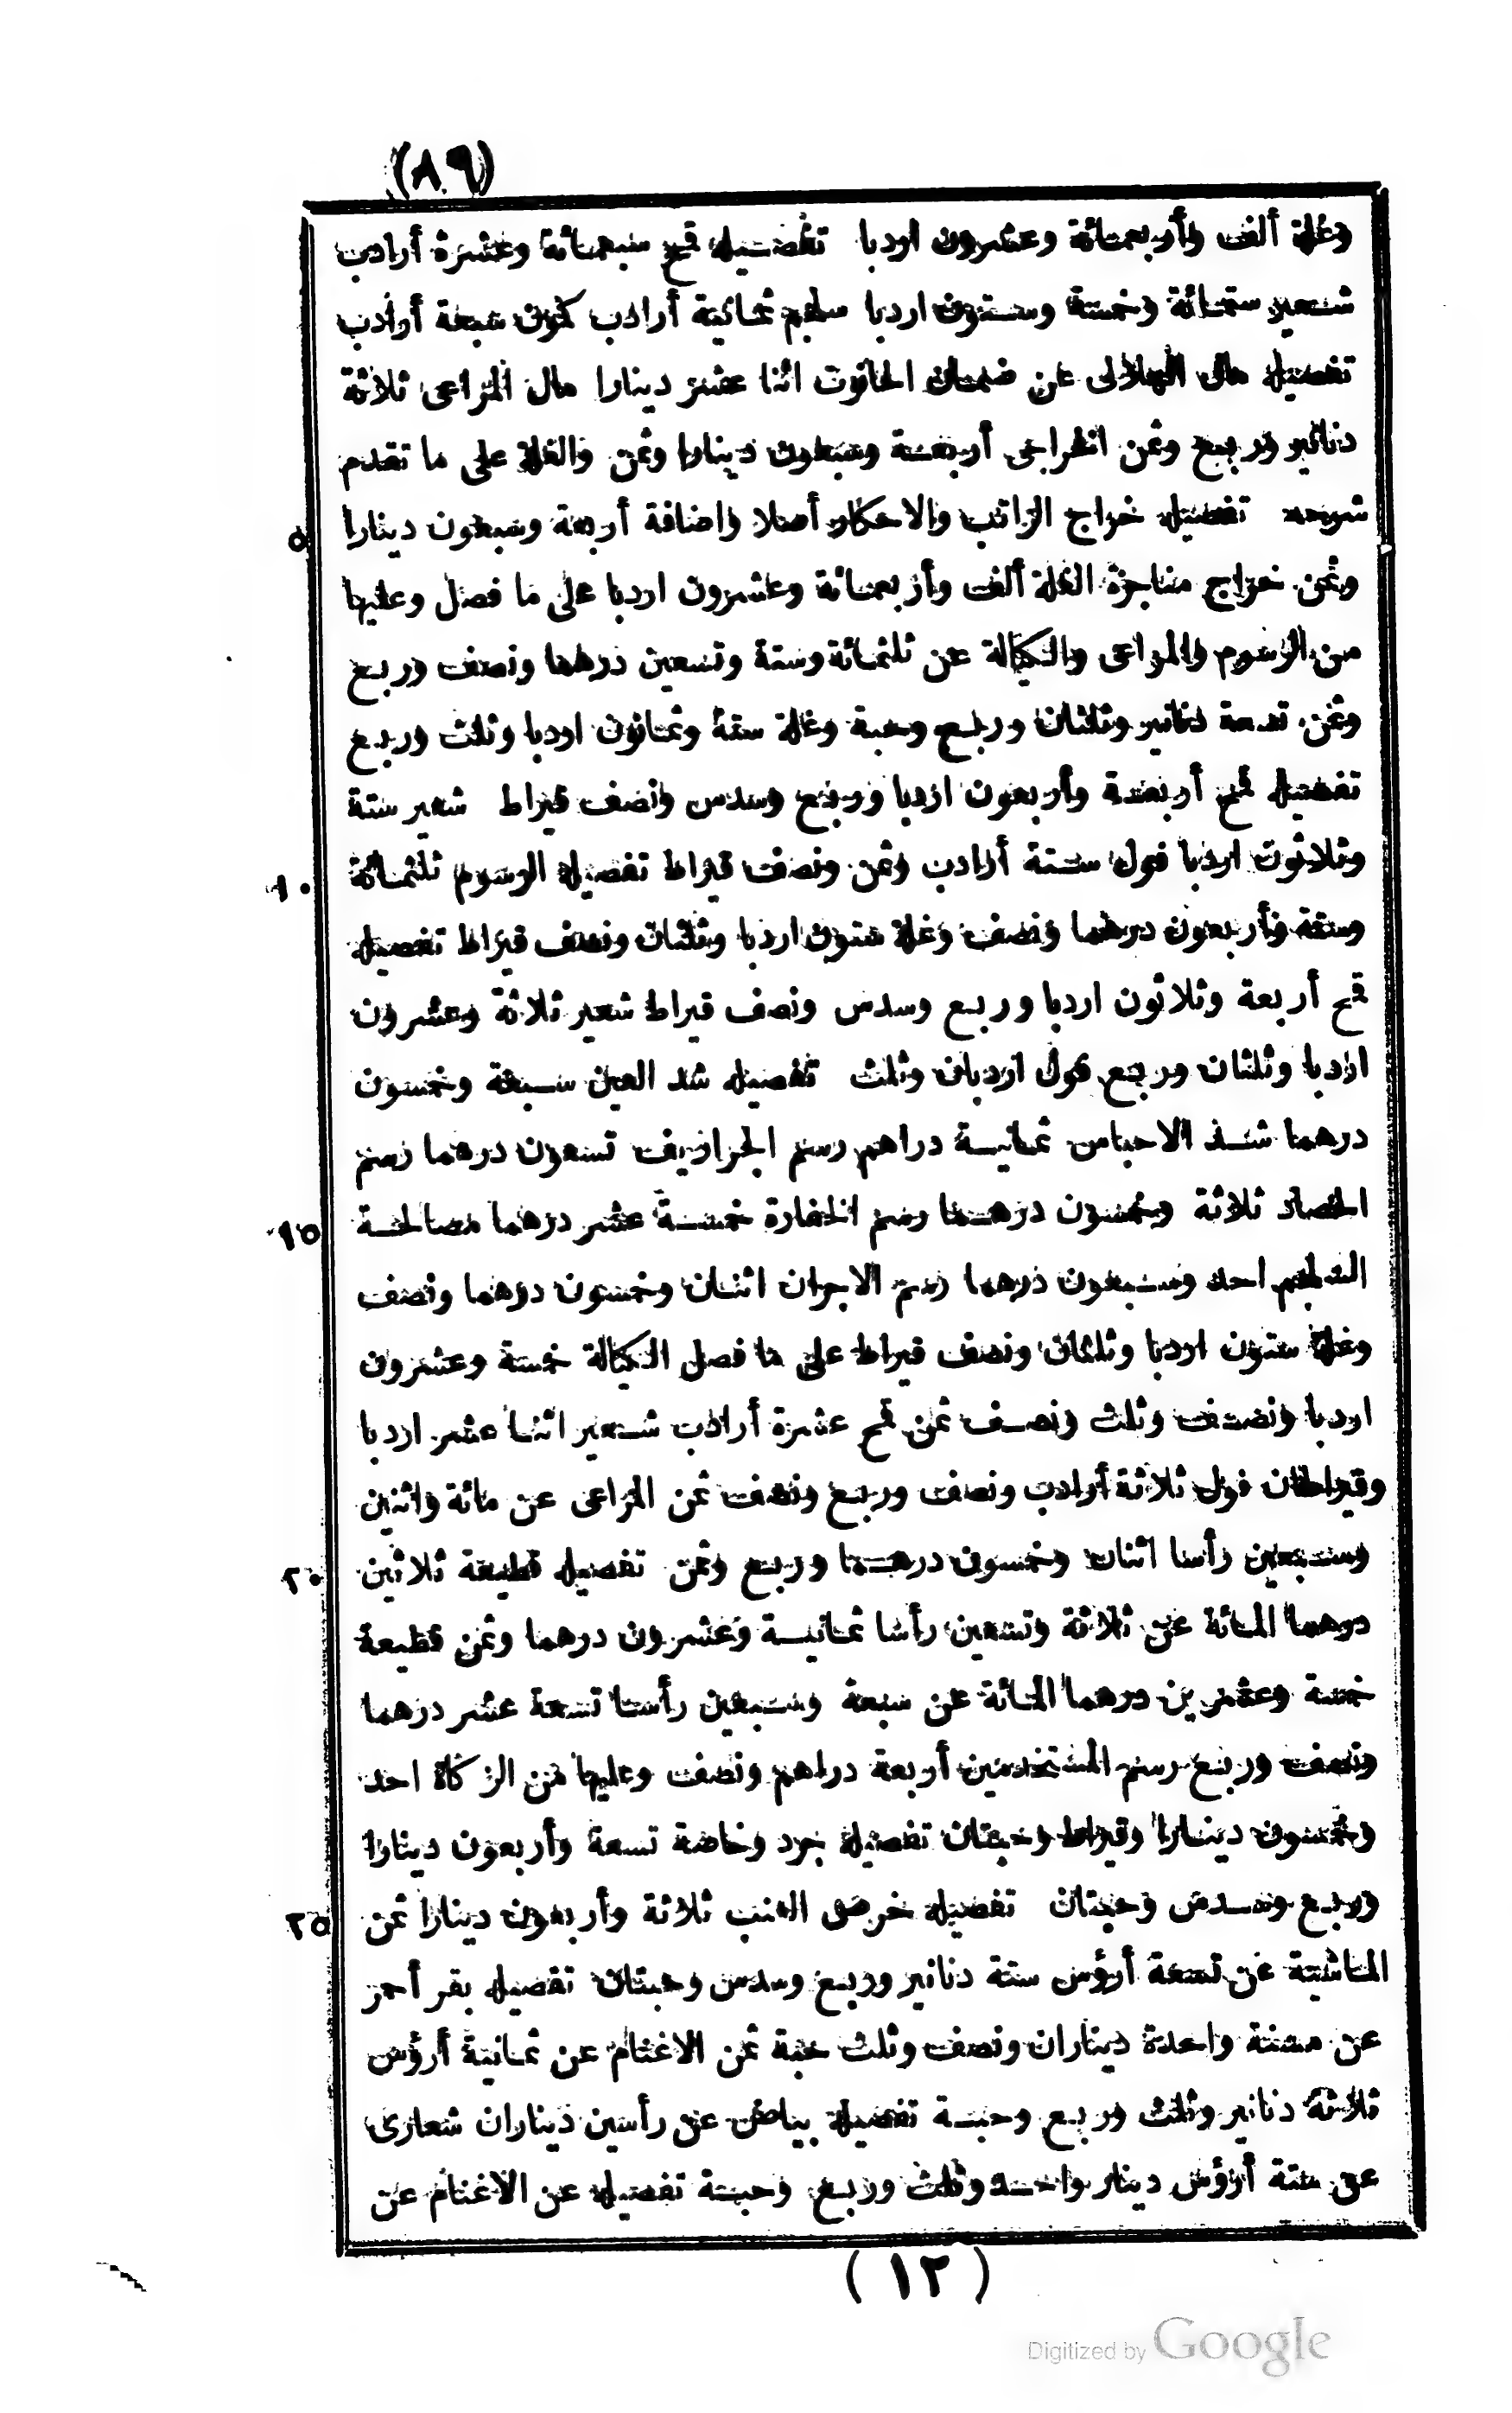 (٨٩)
وغلة ألف وأربعمائة وعشرون اردبا تفصيله قمح سبعمائة وعشرة أرادب
شعير ستمائة وخمسة وستون اردبا سلجم ثمانية أرادب كمون سبعة أرادب
تفصيل مال الهلالى عن ضمان الحانوت اثنا عشر دينارا مال المراعى ثلاثة
دنانير وربيع وثمن الخراجى أربعة وسبعون دينارا وثمن والغلة على ما تقدم
شرحه تفصيل خراج الراتب والاحكار أصلا واضافة أربعة وسبعون دينارا
٥
وثمن خراج مناجزة الغلة ألف وأربعمائة وعشرون اردبا على ما فصل وعليها
من الرسوم والمراعى والكيالة عن ثلثمائة وستة وتسعين درهما ونصف وربع
وثمن تسعة دنانير وثلثان وربع وحبة وغلة ستة وثمانون اردبا وثلث وربع
تفصيل قمح أربعة وأربعون اردبا وربع وسدس ونصف قيراط شعير ستة
وثلاثون اردبا فول ستة أرادب وثمن ونصف قيراط تفصيل الرسوم ثلثمائة
١٠
وستة وأربعون درهما ونصف وغلة ستون اردبا وثلثان ونصف قيراط تفصيله
قمح أربعة وثلاثون اردبا وربع وسدس ونصف قيراط شعير ثلاثة وعشرون
اردبا وثلثان وربع فول اردبان وثلث تفصيله شد العين سبعة وخمسون
درهما شد الاحباس ثمانية دراهم رسم الجراريف تسعون درهما رسم
الحصاد ثلاثة وخمسون درهما رسم الخفارة خمسة عشر درهما مصالحة
١٥
السلجم احد وسبعون درهما رسم الاجران اثنان وخمسون درهما ونصف
وغلة ستون اردبا وثلثان ونصف قيراط على ما فصل الكيالة خمسة وعشرون
اردبا ونصف وثلث ونصف ثمن قمح عشرة أرادب شعير اثنا عشر اردبا
وقيراطان فول ثلاثة أرادب ونصف وربع ونصف ثمن المراعى عن مائة واثنين
وسبعين رأسا اثنان وخمسون درهما وربع وثمن تفصيل قطيعة ثلاثين
٢٠
درهما المائة عن ثلاثة وتسعين رأسا ثمانية وعشرون درهما وثمن قطيعة
خمسة وعشرين درهما المائة عن سبعة وسبعين رأسا تسعة عشر درهما
ونصف وربع رسم المستخدمين أربعة دراهم ونصف وعليها من الزكاة احد
وخمسون دينارا وقيراط وحبتان تفصيله جرد وخاصة تسعة وأربعون دينارا
وربع وسدس وحبتان تفصيله خرص العنب ثلاثة وأربعون دينارا ثمن
٢٥
الماشية عن تسعة أرؤس ستة دنانير وربع وسدس وحبتان تفصيله بقر أحمر
عن مسنة واحدة ديناران ونصف وثلث حبة ثمن الاغنام عن ثمانية أرؤس
ثلاثة دنانير وثلث وربع وحبة تفصيله بياض عن رأسين ديناران شعارى
عن ستة أرؤس دينار واحد وثلث وربع وحبة تفصيله عن الاغنام عن
(١٢)
Digitized by Google